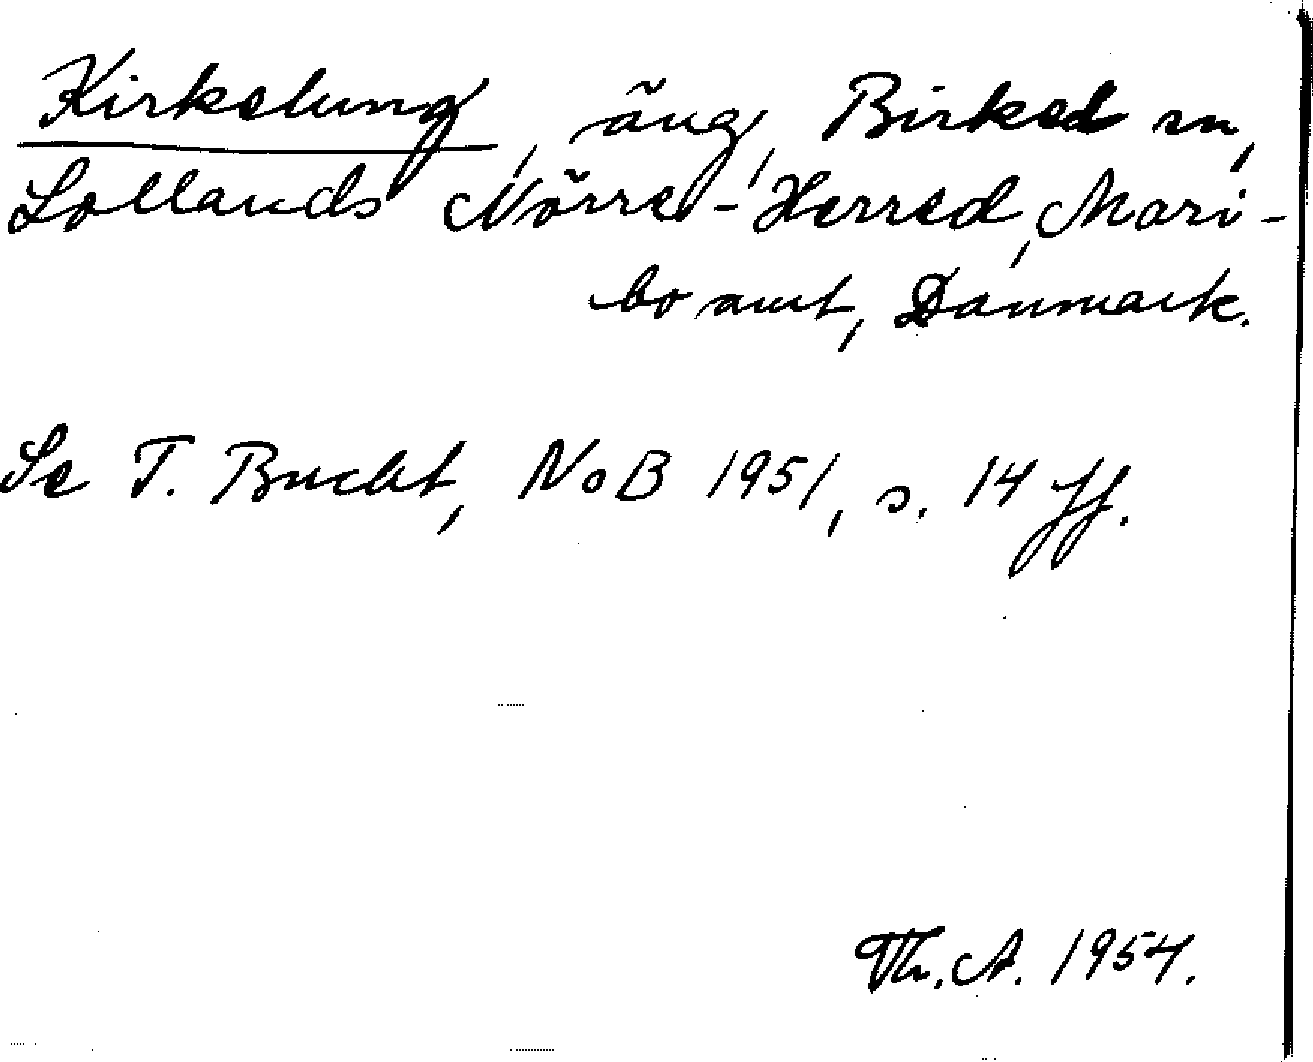 Kirkelung, äng, Birket sn,
Lollands Nörre-Herred, Mari-
bo amt, Danmark.
Se T. Bucht, NoB 1951, s. 14 ff.
Th. A. 1954.